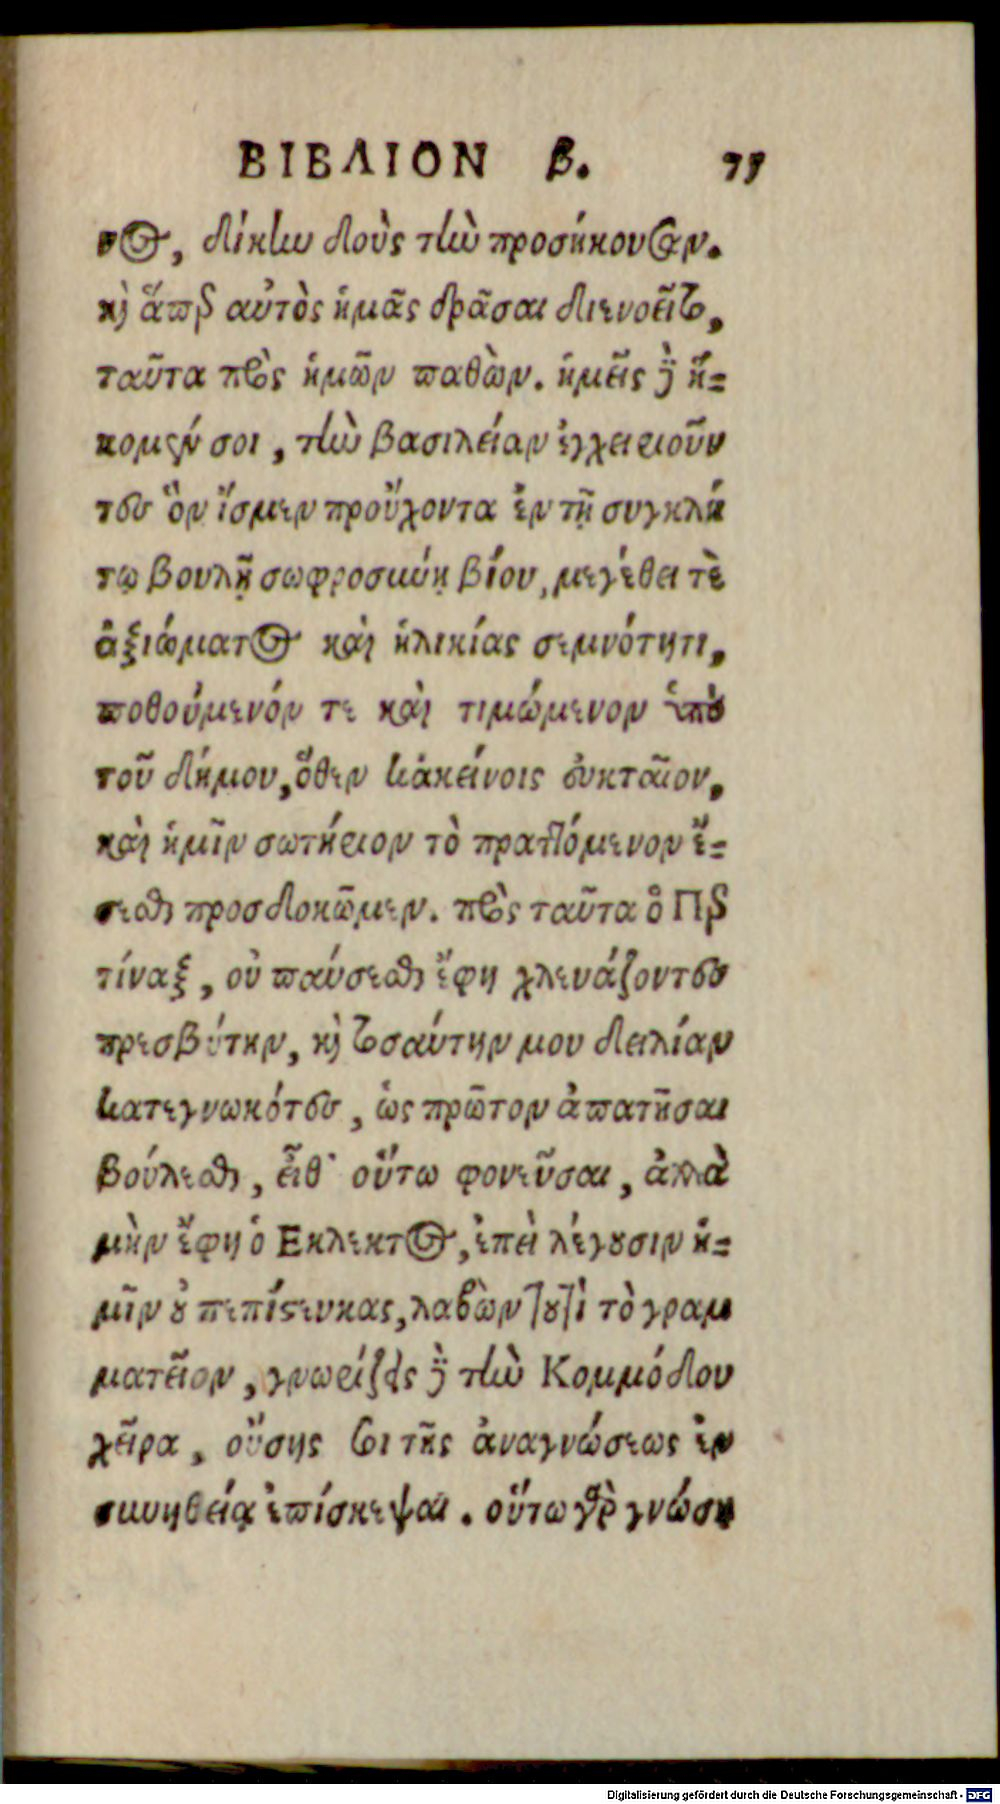 ΒΙΒΛΙΟΝ β. 77
νος, δίκην δοὺς τὴν προσήκουσαν.
καὶ ἅπερ αὐτὸς ἡμᾶς δρᾶσαι διενοεῖτο,
ταῦτα πρὸς ἡμῶν παθὼν. ἡμεῖς δὲ ἥ-
κομεν σοι, τὴν βασιλείαν ἐγχειριοῦν
τες ὃν ἴσμεν προὔχοντα ἐν τῇ συγκλή
τῳ βουλῇ σωφροσύνῃ βίου, μεγέθει τὲ
ἀξιώματος καὶ ἡλικίας σεμνότητι,
ποθούμενόν τε καὶ τιμώμενον ὑπὸ
τοῦ δήμου, ὅθεν κἀκείνοις εὐκταῖον,
καὶ ἡμῖν σωτήριον τὸ πραττόμενον ἔ-
σεσθαι προσδοκῶμεν. πρὸς ταῦτα ὁ Περ
τίναξ, οὐ παύσεσθε ἔφη χλευάζοντες
πρεσβύτην, καὶ τοσαύτην μου δειλίαν
κατεγνωκότες, ὡς πρῶτον ἀπατῆσαι
βούλεσθε, εἶθ' οὕτω φονεῦσαι, ἀλλὰ
μὴν ἔφη ὁ Εκλεκτος, ἐπεὶ λέγουσιν ἡ-
μῖν οὐ πεπίστευκας, λαβὼν τουτὶ τὸ γραμ
ματεῖον, γνωρίζεις δὲ τὴν Κομμόδου
χεῖρα, οὔσης σοι τῆς ἀναγνώσεως ἐν
συνηθείᾳ ἐπίσκεψαι. οὕτω γὰρ γνώσῃ
Digitalisierung gefördert durch die Deutsche Forschungsgemeinschaft - DFG